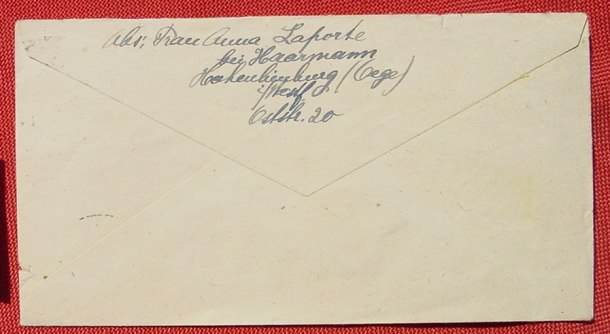 Abs: Frau Anna Laporte
bei Haarmann
Hohenlimburg (Oege)
i/Westf.
Oststr. 20